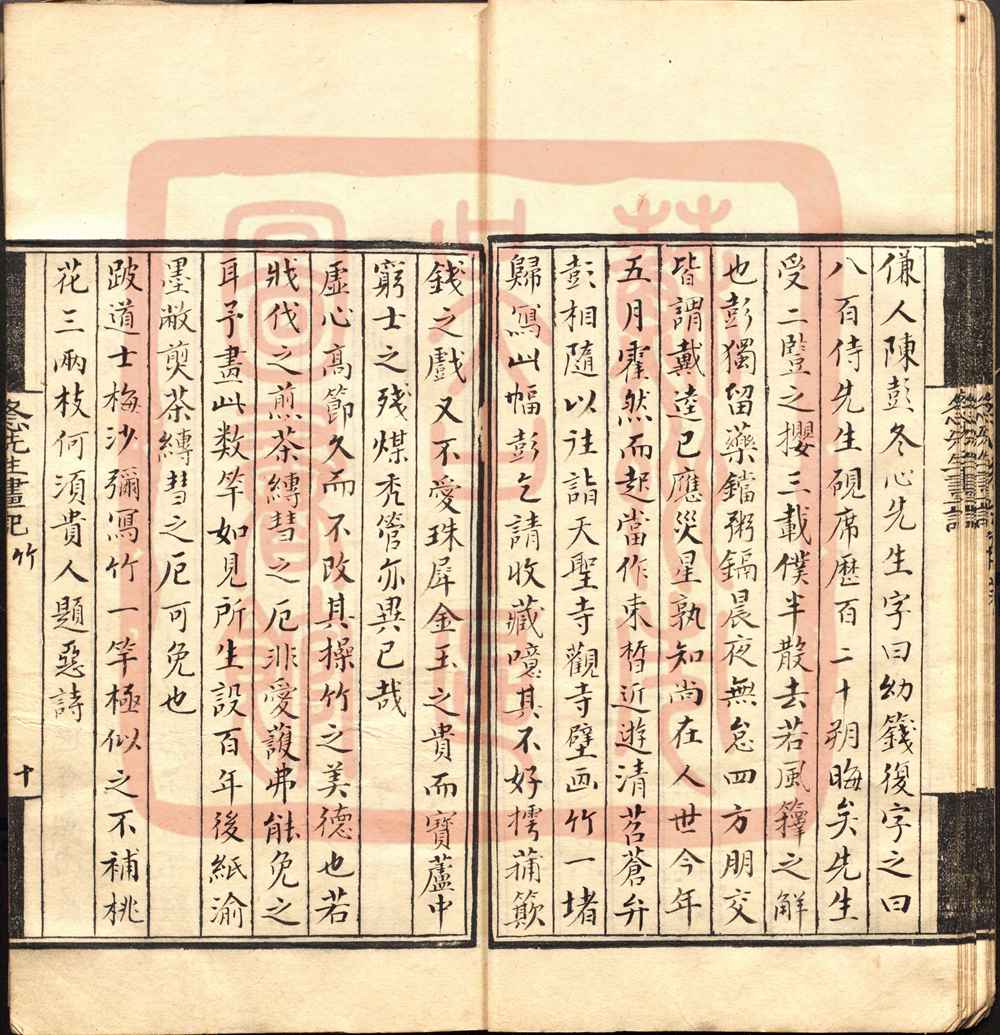 傔人陳彭冬心先生字曰幼篯復字之曰
八百侍先生硯席歷百二十朔晦矣先生
受二豎之攖三載僕半散去若風籜之解
也彭獨留藥鐺粥鎘晨夜無怠四方朋交
皆謂戴逵已應災星孰知尚在人世今年
五月霍然而起當作束晳近遊清苕蒼弁
彭相隨以往詣天聖寺觀寺壁画竹一堵
歸寫此幅彭乞請收藏噫其不好摴蒱簸
錢之戲又不愛珠犀金玉之貴而寶蘆中
窮士之殘煤禿管亦異已哉
虛心高節久而不改其操竹之美德也若
戕伐之煎茶縛彗之厄非愛護弗能免之
耳予畫此数竿如見所生設百年後紙渝
墨敝煎茶縛彗之厄可免也
跛道士梅沙彌寫竹一竿極似之不補桃
花三兩枝何須貴人題惡詩
冬心先生畫記 竹
十